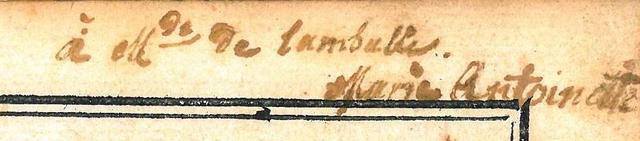 à M^de de lamballe.
Marie Antoinette